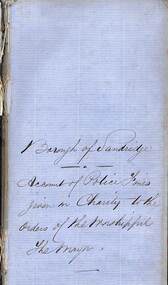 Borough of Sandridge
Account of Police Fines
given in Charity to the
orders of the Worshipful
The Mayor.